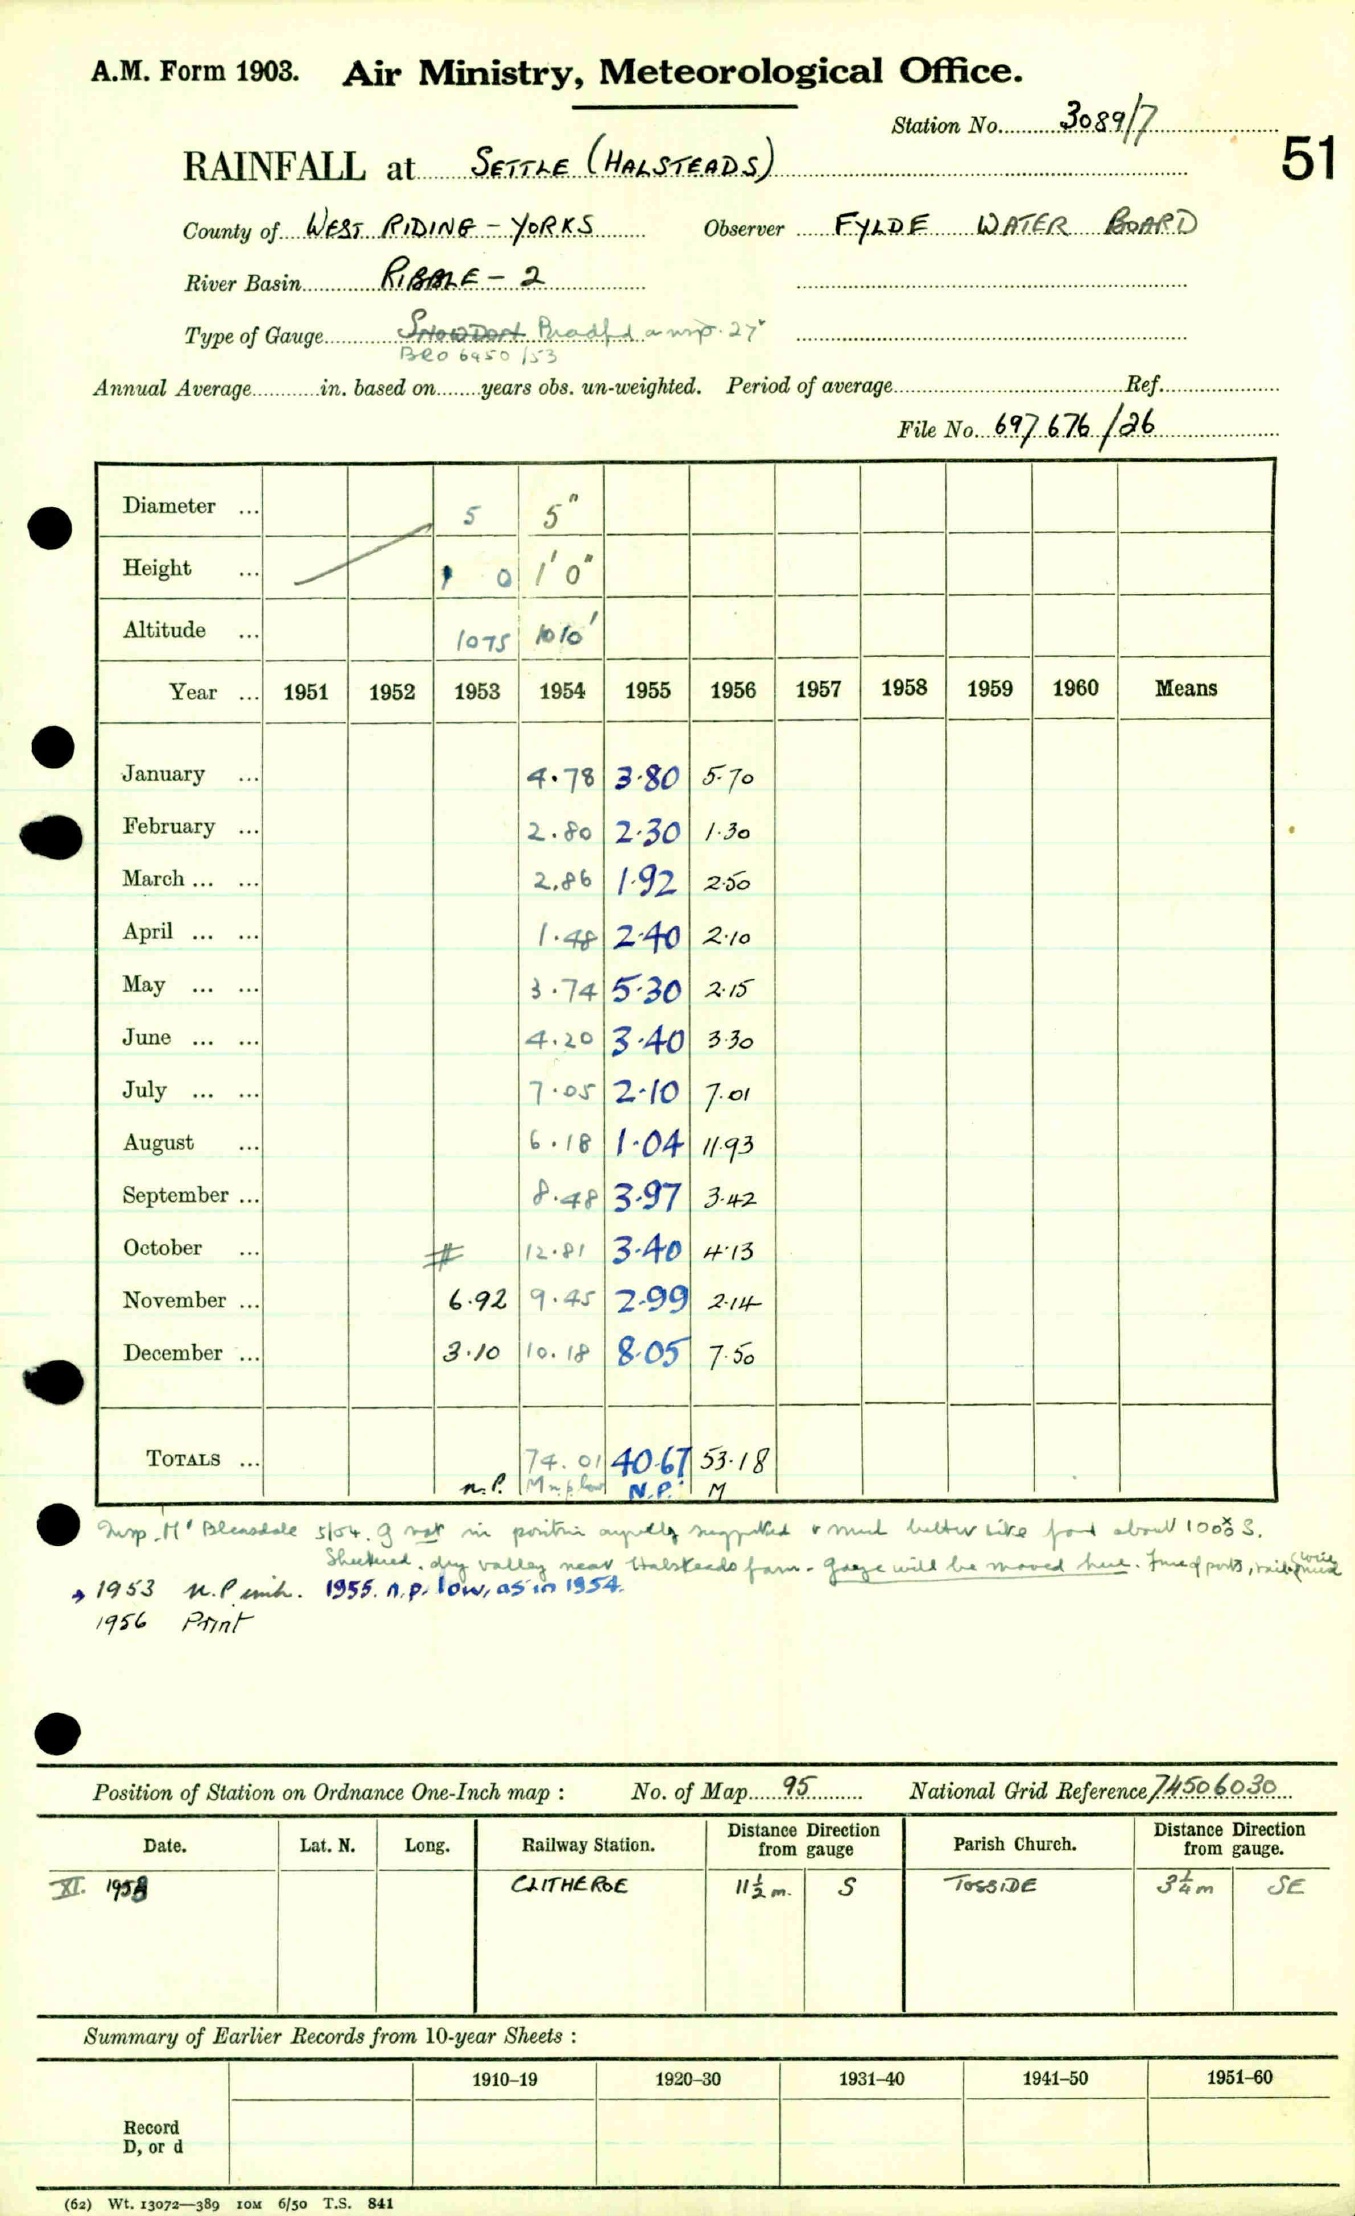 A.M. Form 1903. Air Ministry, Meteorological Office.
Station No. 3089/7
51
RAINFALL at SETTLE (HALSTEADS)
County of WEST RIDING - YORKS Observer FYLDE WATER BOARD
River Basin RIBBLE - 2
Type of Gauge SNOWDON Bradfd a insp. 27"
BRO 6950/53
Annual Average in. based on years obs. un-weighted. Period of average Ref.
File No. 697676/26
Diameter ... 5 5"
Height ... 1 0 1' 0"
Altitude ... 1075 1010'
Year ... 1951 1952 1953 1954 1955 1956 1957 1958 1959 1960 Means
January ... 4.78 3.80 5.70
February ... 2.80 2.30 1.30
March ... ... 2.86 1.92 2.50
April ... ... 1.48 2.40 2.10
May ... ... 3.74 5.30 2.15
June ... ... 4.20 3.40 3.30
July ... ... 7.05 2.10 7.01
August ... 6.18 1.04 11.93
September ... 8.48 3.97 3.42
October ... # 12.81 3.40 4.13
November ... 6.92 9.45 2.99 2.14
December ... 3.10 10.18 8.05 7.50
TOTALS ... 74.01 40.67 53.18
n.P. M n p low N.P. M
Insp. Mr Bleasdale 5/54. g not in position suggested & much better site found about 100 S.
Sheltered. dry valley near Halsteads farm. Gauge will be moved here. Fence of posts, rails
→ 1953 n.P. inch. 1955. n.p. low, as in 1954.
1956 Print
Position of Station on Ordnance One-Inch map : No. of Map 95 National Grid Reference 74506030
Date. Lat. N. Long. Railway Station. Distance Direction from gauge Parish Church. Distance Direction from gauge.
XI. 1953 CLITHEROE 11½ m. S TOSSIDE 3¼ m SE
Summary of Earlier Records from 10-year Sheets :
1910–19 1920–30 1931–40 1941–50 1951–60
Record
D, or d
(62) Wt. 13072—389 10M 6/50 T.S. 841